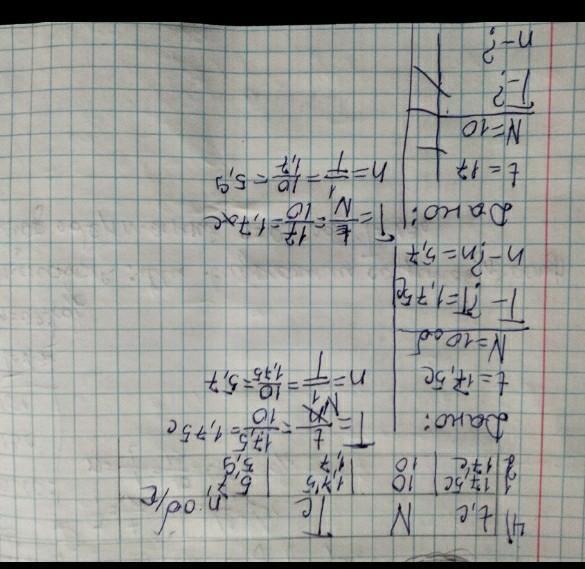 4) t,c N T c n, об/с
1 17,5c 10 1,75 5,7
2 17c 10 1,7 5,9
Дано:
t=17,5c
N=10 об
T-? T=1,75c
n-? n=5,7
T=t/N=17,5/10=1,75c
n=1/T=10/1,75=5,7
Дано:
t=17
N=10
T-?
n-?
T=t/N=17/10=1,7c
n=1/T=10/1,7=5,9